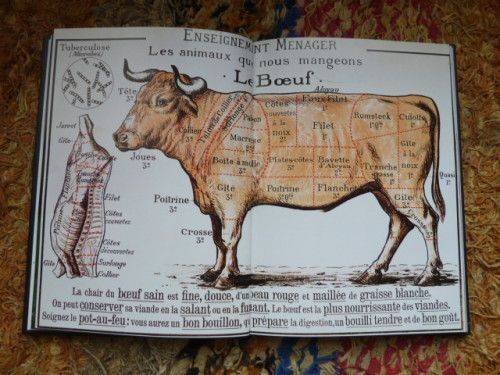 ENSEIGNEMENT MÉNAGER
Les animaux que nous mangeons
Le Bœuf
Tuberculose
(Microbes)
Tête
3e
Joues
3e
Collier
3e
Talon de Collier
Paleron
Macreuse
Côtes
couvertes
à la
noix
2e
Aloyau
Faux Filet
Filet
Rumsteek
Culotte
Boîte à moelle
3e
Plates-côtes
3e
Bavette
d'Aloyau
Tranche
Gîte
à la
noix
Quasi
Gîte
3e
Poitrine
3e
Poitrine
Flanchet
Gîte
Poitrine
3e
Crosse
3e
Jarret
Gîte
Filet
Côtes
couvertes
Côtes
découvertes
Surlonge
Collier
La chair du bœuf sain est fine, douce, d'un beau rouge et maillée de graisse blanche.
On peut conserver sa viande en la salant ou en la fumant. Le bœuf est la plus nourrissante des viandes.
Soignez le pot-au-feu: vous aurez un bon bouillon, qui prépare la digestion, un bouilli tendre et de bon goût.